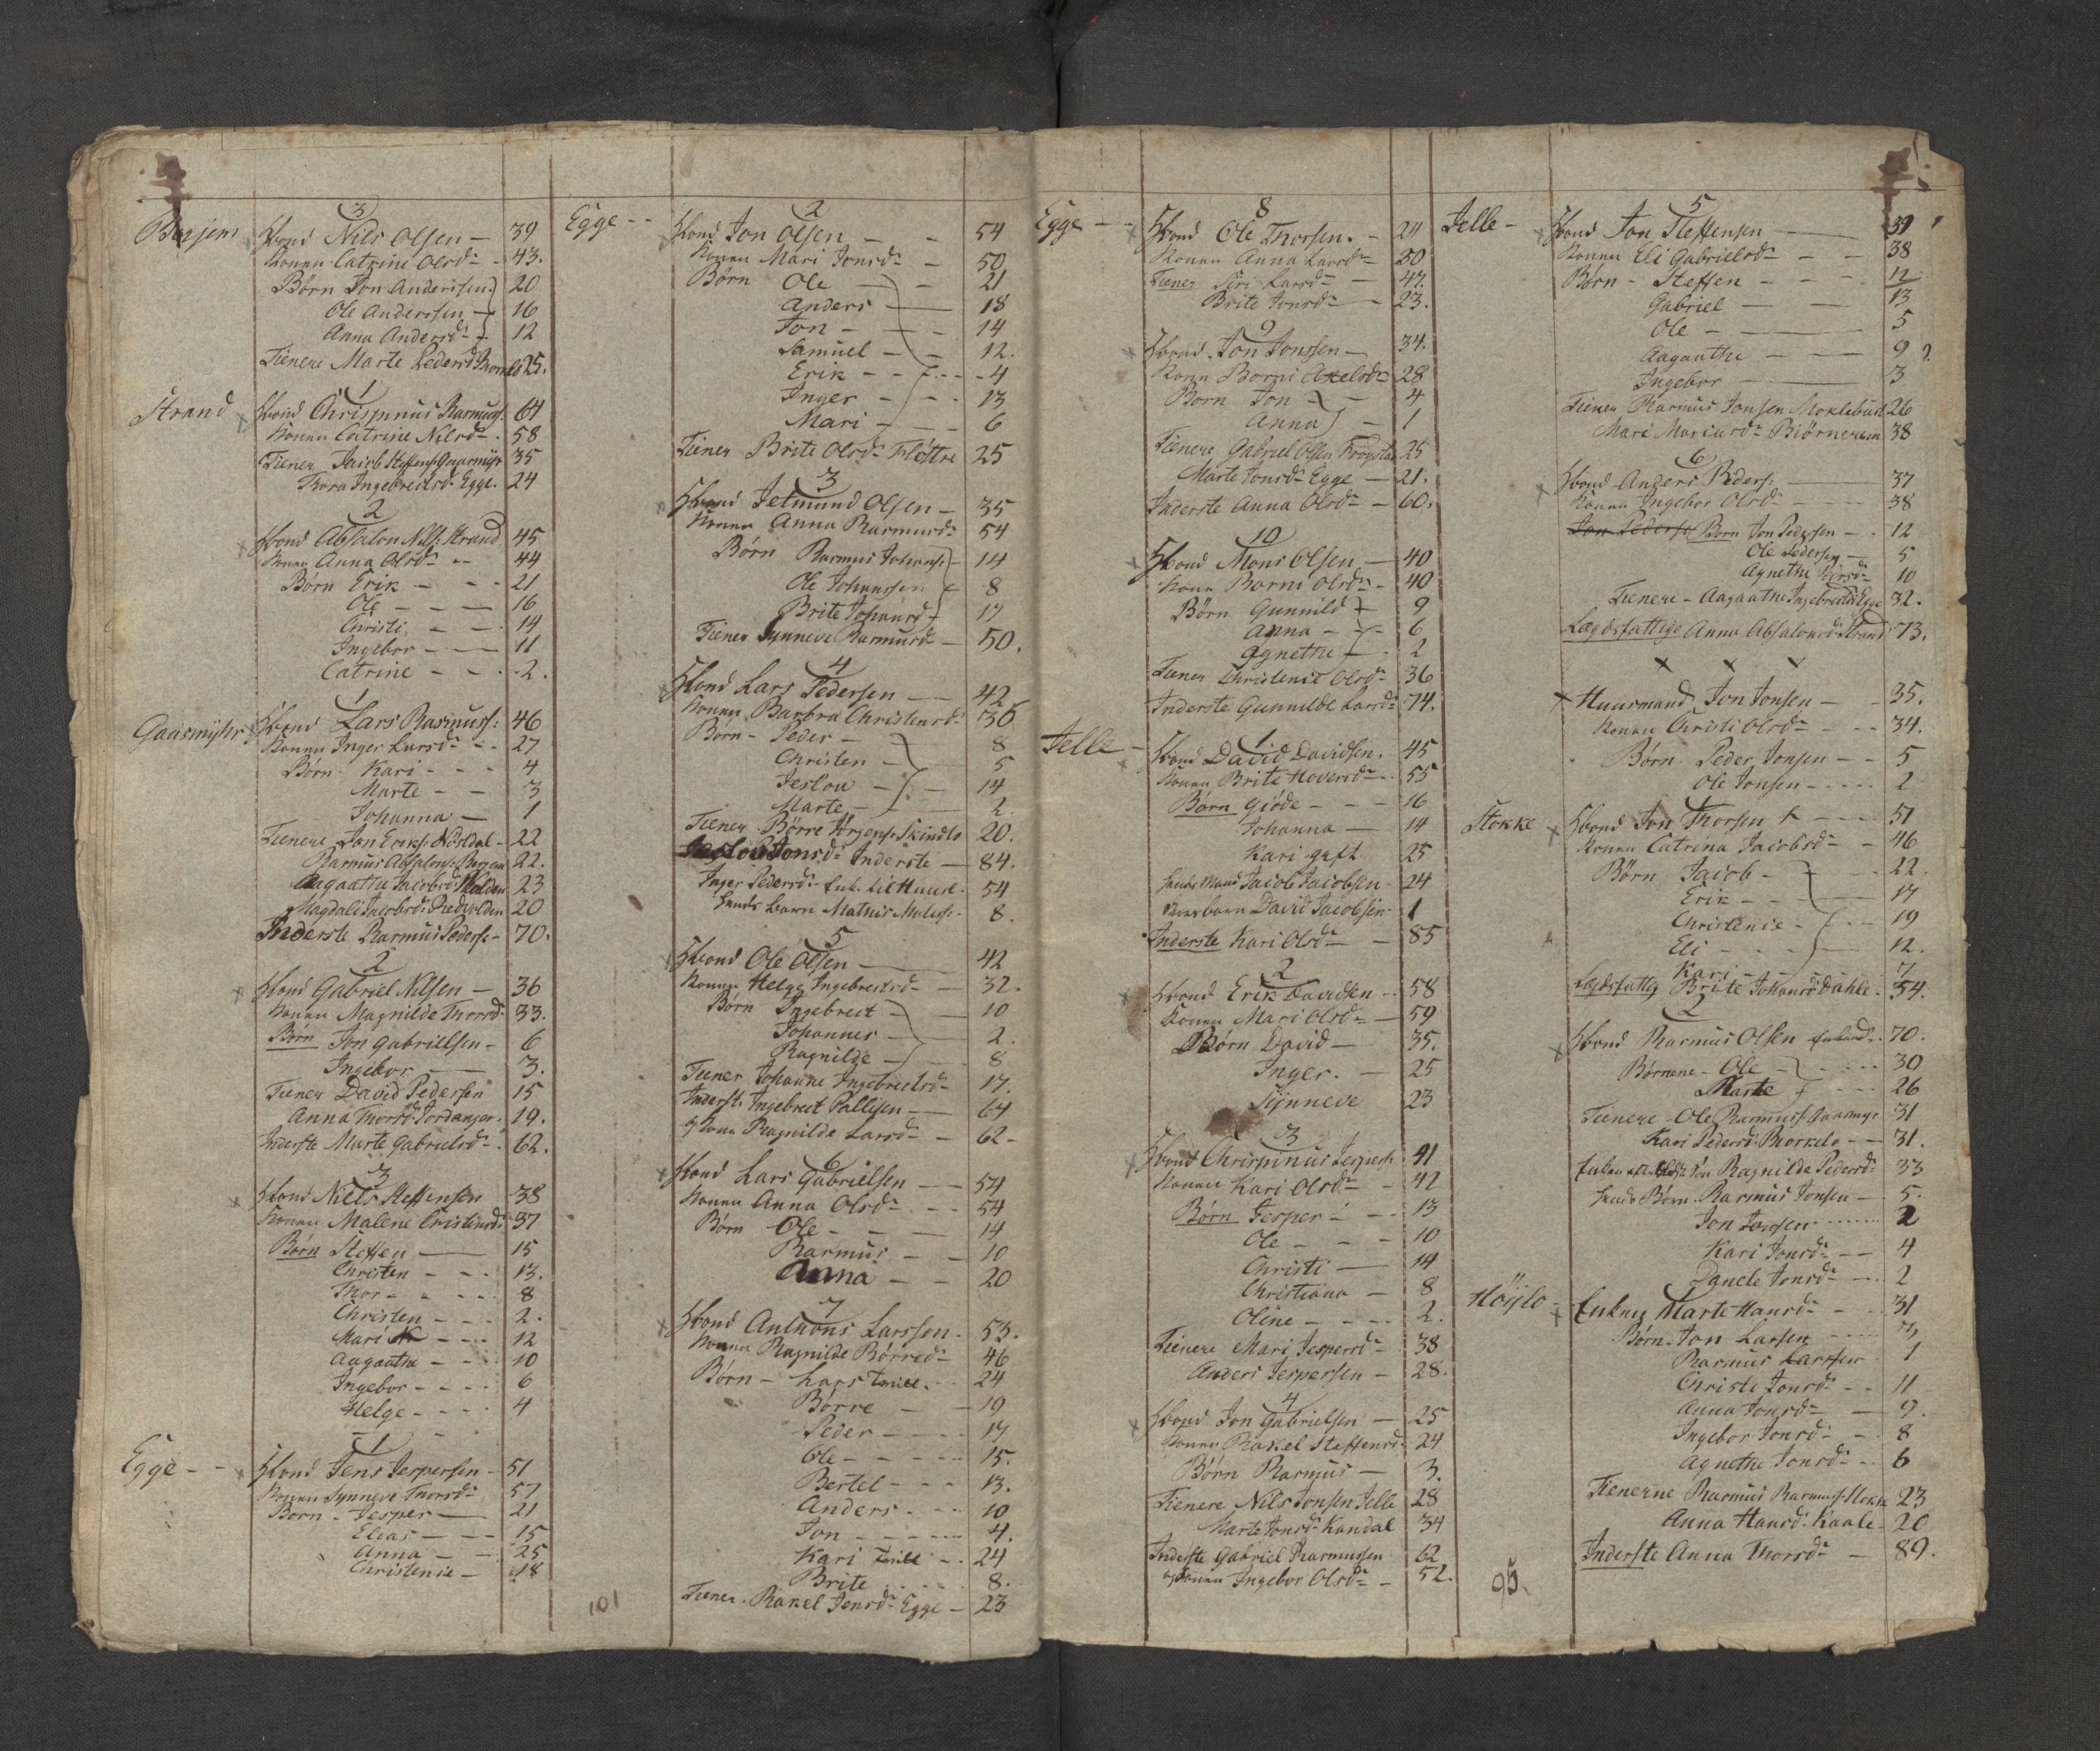 3
Bærjem Hbond Nils Olsen — 39
Konen Catrine Olsdr - 43.
Børn Jon Anderssen 20
Ole Anderssen 16
Anna Andersdr 12
Tienere Marte Pedersdr 25.
1
Strand Hbond Chrispinus Rasmuss: 64
Konen Catrine Nilsdr. 58
Tienere Jacob Steffens: Gaasmyr 35
Thora Ingebrectsdr Egge. 24
2
Hbond Absalon Nilss: Strand 45
Konen Anna Olsdr -- 44
Børn Erik - - - 21
Ole - - — 16
Christi - — 14
Ingebor - — 11
Catrine - - - 2.
1
Gaasmÿhr Hbond Lars Rasmuss: 46
Konen Inger Larsdr - - 27
Børn. Kari - - - 4
Marte - - 3
Johanna — 1
Tienere Jon Eriks: Nordal - 22
Rasmus Absalons: Berjem 22.
Aagaathe Jacobsdr Holden 23
Magdali Jacobsdr Redvolden 20
Inderste Rasmus Peders: - 70.
2
Hbond Gabriel Nilsen — 36
Konen Magnilde Thorsdr 33.
Børn Jon Gabrielsen - 6
Ingebor — 3.
Tiener David Pedersen 15
Anna Thorsdr Jordanger. 19.
Inderste Marte Gabrielsdr. 62.
3
Hbond Niels Steffensen 38
Konen Malene Cristensdr 37
Børn Steffen — 15
Christen - - - 13.
Thor - - - - 8
Christen - - - 2.
Mari - - - 12
Aagaathe - - - 10
Ingebor - - - 6
Helge - - - 4
1
Egge - - Hbond Jens Jespersen - 51
Konen Synneve Thorsdr 57
Børn - Jesper — 21
Elias — - - 15
Anna — - 25
Christenie — 18
2
Egge - - Hbond Jon Olsen — - 54
Konen Mari Jonsdr - 50
Børn Ole — - 21
Anders — 18
Jon - — - 14
Samuel - - 12.
Erik - - - - 4
Inger - - - 13
Mari - — - 6
Tiener Brite Olsdr Fløttre 25
3
Hbond Jetmund Olsen — 35
Konen Anna Rasmusdr 54
Børn Rasmus Johans: 14
Ole Johanssen 8
Brite Johansdr 17
Tiener Synneve Rasmusdr — 50.
4
Hbond Lars Pedersen — 42
Konen Barbra Christensdr 36
Børn - Peder — 8
Christen — 5
Jeslou - — 14
Marte — 2.
Tiener Børre Jörgens: Skindlo 20.
Jeslou Jonsdr Inderste — 84.
Inger Pedersdr Enk. til Huuse. 54
hendes barn Mathis Matss: - 8.
5
Hbond Ole Olsen — 42
Konen Helge Ingebrectsdr — 32.
Børn Ingebrect — 10
Johannes — 2.
Ragnilde — 8
Tiener Johanne Ingebrectsdr 17.
Inderst. Ingebrect Pallesen — 64
Konen Ragnilde Larsdr — 62 -
6
Hbond Lars Gabrielsen — 54
Konen Anna Olsdr - - 54
Børn Ole - - — 14
Rasmus - - 10
Anna — - 20
7
Hbond Anthons Larssen. 53.
Konen Ragnilde Børresdr 46
Børn - Lars tvill. - 24
Børre — - 19
Peder — - - 17
Ole - - - - 15.
Bertel - - - 13.
Anders - - - 10
Jon - - - - 4.
Kari tvill - - 24
Brite - - - 8.
Tiener. Rakel Jensdr Egge — 23
101
8
Egge - - Hbond Ole Thorsen. - 24
Konen Anna Larsdr 50
Tiener Siri Larsdr — 47.
Brite Jonsdr — 23.
9
Hbond. Jon Jonssen — 34.
Konen Borni Axelsdr 28
Børn Jon — 4
Anna — 1
Tienere Gabriel Olsen 25
Marte Jonsdr Egge — 21.
Inderste Anna Olsdr — 60.
10
Hbond Mons Olsen — 40
Konen Borni Olsdr - 40
Børn Gunnild 9
Anna - - 6
Agnethe - 2
Tiener Christense Olsdr 36
Inderste Gunnilde Larsdr 74.
1
Jelle - Hbond David Davidsen. 45
Konen Brite Hoversdr - 55
Børn Giöde - - - 16
Johanna — 14
Kari gift 25
hendes Mand Jacob Jacobsen - 24
deres barn David Jacobsen. 1
Inderste Kari Olsdr - 85
2
Hbond Erik Davidsen - 58
Konen Mari Olsdr — 59
Børn David — 35.
Inger. — 25
Synneve 23
3
Hbond Chrispinus Jespers: 41
Konen Kari Olsdr - 42
Børn Jesper - - 13
Ole - - - 10
Christi — 14
Christiana — 8
Oline - - - 2.
Tienere Mari Jespersdr 38
Anders Jespersen - 28.
4
Hbond Jon Gabrielsen — 25
Konen Rakel Steffensdr 24
Børn Rasmus — 3.
Tienere Nils Jonsen Jelle 28
Marte Jonsdr Kandal 34
Inderste Gabriel Rasmussen 62
Konen Ingebor Olsdr - 52.
5
Jelle - Hbond Jon Steffensen — 39
Konen Eli Gabrielsdr — - — 38
Børn - Steffen — - - 12
Gabriel — — 13
Ole - — 5
Aagaathe - - — 9
Ingebor — 3
Tiener Rasmus Jonsen Moklebust 26
Mari Mariusdr Biörnerem 38
6
Hbond Anders Peders: — 37
Konen Ingebor Olsdr - - 38
Jon Pederse Børn Jon Pedersen - - 12
Ole Pedersen - 5
Agnethe Pedersdr 10
Tienere - Aagaathe Ingebrectsdr Egge 32.
Lægdsfattige Anna Absalonsdr Strand 73.
x x x
Huusmand Jon Jonsen - - 35.
Konen Christi Olsdr - - - 34.
Børn. Peder Jonsen - - 5
Ole Jonsen - - - - 2
Stokke Hbond Jon Thorsen - - - 51
Konen Catrina Jacobsdr - 46
Børn Jacob - - 22.
Erik - - - 17
Christenie - - - 19
Eli - - - 12.
Kari - - 7
Lægdsfattig Brite Johansdr Dahle - 54.
2
Hbond Rasmus Olsen Enkemd. 70.
Børnene - Ole - - - 30
Marte - - - 26
Tienere - Ole Rasmuss: Gaasmyr 31
Kari Pedersdr Bierkelo - — 31.
Ragnilde Pedersdr 33
hendes Børn. Rasmus Jonsen — 5.
Jon Jonssen - - - - 2
Kari Jonsdr - — 4
Danele Jonsdr — 2
Höÿlo - Enken Marte Hansdr - - 31
Børn. Jon Larsen - - - 3
Rasmus Larssen 1
Christi Jonsdr - - 11
Anna Jonsdr - — 9.
Ingebor Jonsdr - - 8
Agnethe Jonsdr - - 6
Tienerne Rasmus Rasmuss: Stokke 23
Anna Hansdr. Kaale - 20
Inderste Anna Thorsdr — 89.
95.